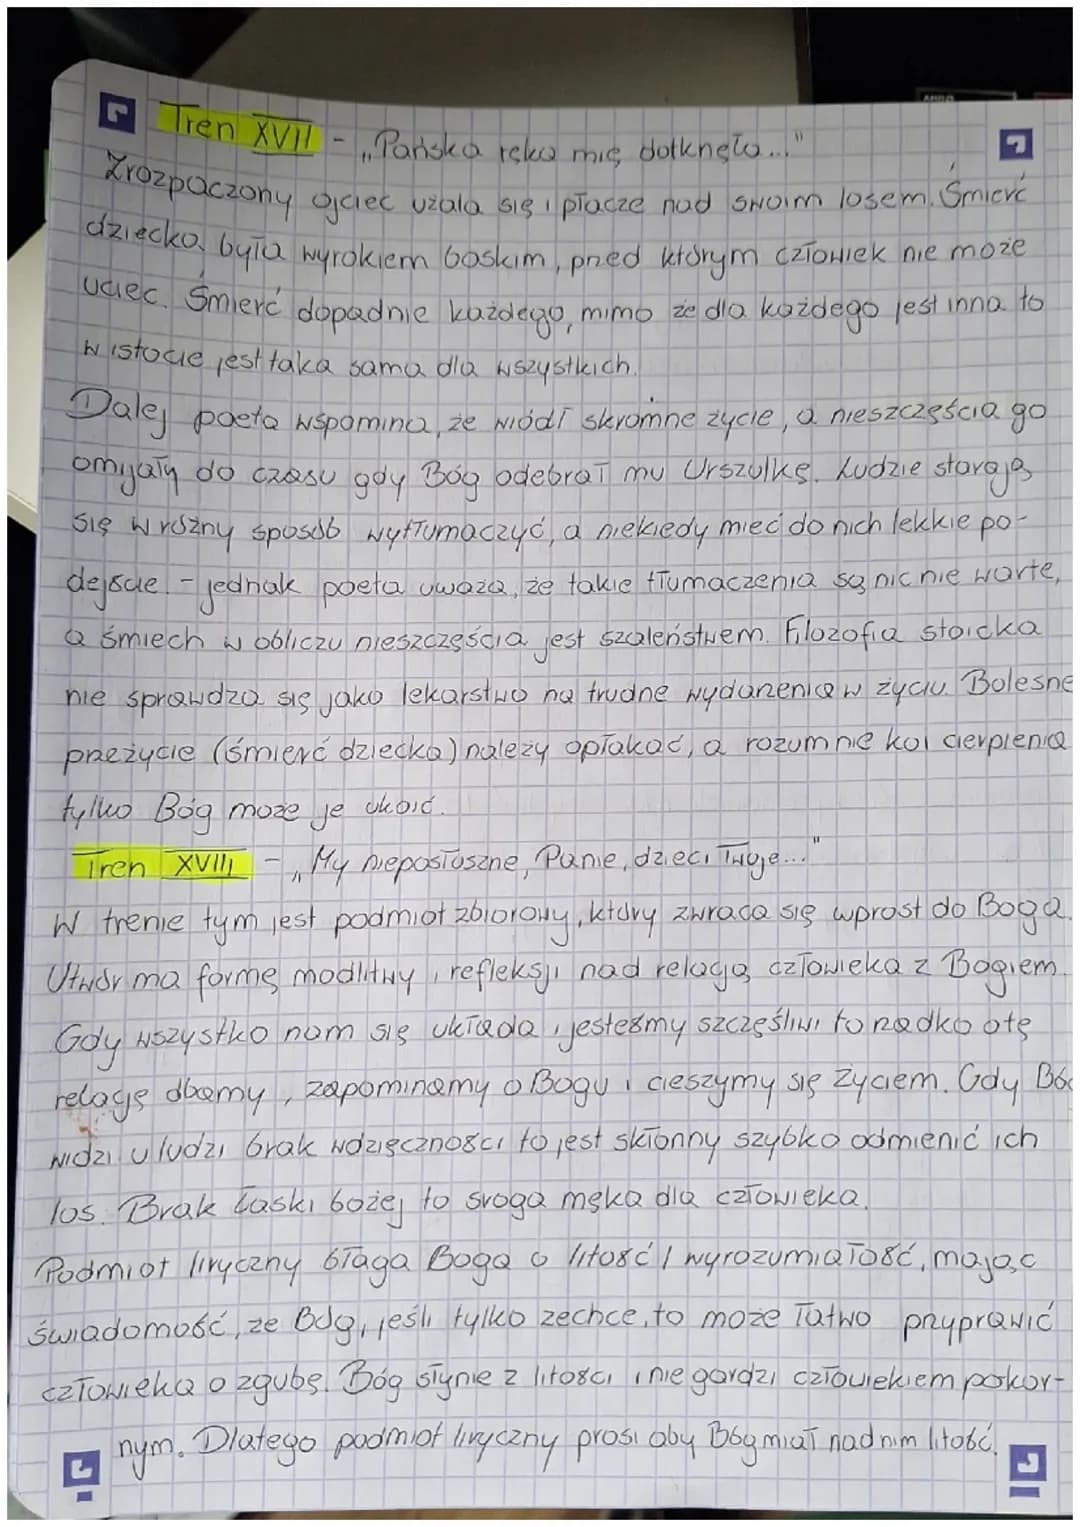 Tren XVII - „Pańska ręka mię dotknęła..."
Zrozpaczony ojciec użala się i płacze nad swoim losem. Śmierć
dziecka była wyrokiem boskim, przed którym człowiek nie może
uciec. Śmierć dopadnie każdego, mimo że dla każdego jest inna to
w istocie jest taka sama dla wszystkich.
Dalej poeta wspomina, że wiódł skromne życie, a nieszczęścia go
omijały do czasu gdy Bóg odebrał mu Urszulkę. Ludzie starają
się w różny sposób wytłumaczyć, a niekiedy mieć do nich lekkie po-
dejście - jednak poeta uważa, że takie tłumaczenia są nic nie warte,
a śmiech w obliczu nieszczęścia jest szaleństwem. Filozofia stoicka
nie sprawdza się jako lekarstwo na trudne wydarzenia w życiu. Bolesne
przeżycie (śmierć dziecka) należy opłakać, a rozum nie koi cierpienia
tylko Bóg może je ukoić.
Tren XVIII - „My nieposłuszne, Panie, dzieci Twoje..."
W trenie tym jest podmiot zbiorowy, który zwraca się wprost do Boga.
Utwór ma formę modlitwy i refleksji nad relacją człowieka z Bogiem.
Gdy wszystko nam się układa i jesteśmy szczęśliwi to rzadko o tę
relację dbamy, zapominamy o Bogu i cieszymy się życiem. Gdy Bóg
widzi u ludzi brak wdzięczności to jest skłonny szybko odmienić ich
los. Brak łaski bożej to sroga męka dla człowieka.
Podmiot liryczny błaga Boga o litość i wyrozumiałość, mając
świadomość, że Bóg, jeśli tylko zechce, to może łatwo przyprawić
człowieka o zgubę. Bóg słynie z litości i nie gardzi człowiekiem pokor-
nym. Dlatego podmiot liryczny prosi aby Bóg miał nad nim litość.